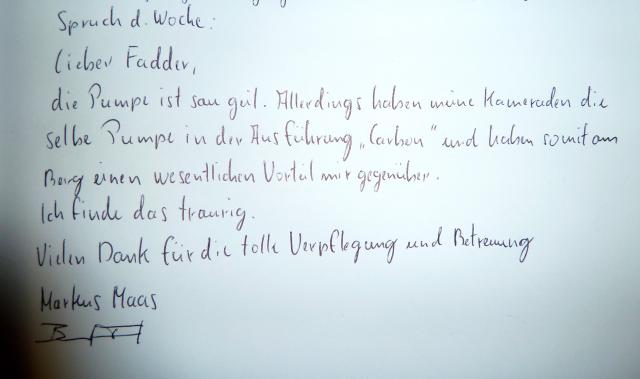 Spruch d. Woche:
Lieber Fadder,
die Pumpe ist sau geil. Allerdings haben meine Kameraden die
selbe Pumpe in der Ausführung „Carbon" und haben somit am
Berg einen wesentlichen Vorteil mir gegenüber.
Ich finde das traurig.
Vielen Dank für die tolle Verpflegung und Betreuung
Markus Maas